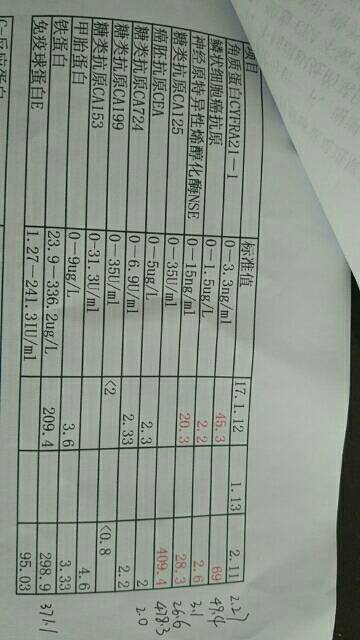 项目 标准值 17.1.12 1.13 2.11 2.27
角质蛋白CYFRA21-1 0-3.3ng/ml 45.3 69 49.4
鳞状细胞癌抗原 0-1.5ug/L 2.2 2.6 3.1
神经原特异性烯醇化酶NSE 0-15ng/ml 20.3 28.3 26.6
糖类抗原CA125 0-35U/ml 409.4 478.3
癌胚抗原CEA 0-5ug/L 2.3 2 2.0
糖类抗原CA724 0-6.9U/ml 2.33 2.2
糖类抗原CA199 0-35U/ml <2 <0.8
糖类抗原CA153 0-31.3U/ml 4.6
甲胎蛋白 0-9ug/L 3.6 3.33
铁蛋白 23.9-336.2ug/L 209.4 298.9 371.1
免疫球蛋白E 1.27-241.3IU/ml 95.03
C-反应蛋白